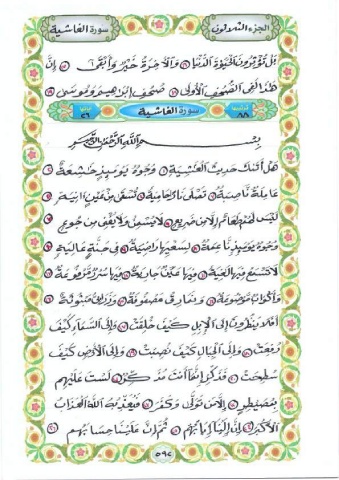 الجزء الثلاثون
سورة الغاشية
بَلْ تُؤْثِرُونَ الْحَيَوٰةَ الدُّنْيَا وَالْآخِرَةُ خَيْرٌ وَأَبْقَىٰ إِنَّ
هَٰذَا لَفِي الصُّحُفِ الْأُولَىٰ صُحُفِ إِبْرَاهِيمَ وَمُوسَىٰ
ترتيبها ٨٨ سورة الغاشية آياتها ٢٦
بِسْمِ اللَّهِ الرَّحْمَٰنِ الرَّحِيمِ
هَلْ أَتَىٰكَ حَدِيثُ الْغَٰشِيَةِ وُجُوهٌ يَوْمَئِذٍ خَٰشِعَةٌ
عَامِلَةٌ نَاصِبَةٌ تَصْلَىٰ نَارًا حَامِيَةً تُسْقَىٰ مِنْ عَيْنٍ آنِيَةٍ
لَيْسَ لَهُمْ طَعَامٌ إِلَّا مِنْ ضَرِيعٍ لَا يُسْمِنُ وَلَا يُغْنِي مِنْ جُوعٍ
وُجُوهٌ يَوْمَئِذٍ نَاعِمَةٌ لِسَعْيِهَا رَاضِيَةٌ فِي جَنَّةٍ عَالِيَةٍ
لَا تَسْمَعُ فِيهَا لَٰغِيَةً فِيهَا عَيْنٌ جَارِيَةٌ فِيهَا سُرُرٌ مَرْفُوعَةٌ
وَأَكْوَابٌ مَوْضُوعَةٌ وَنَمَارِقُ مَصْفُوفَةٌ وَزَرَابِيُّ مَبْثُوثَةٌ
أَفَلَا يَنْظُرُونَ إِلَى الْإِبِلِ كَيْفَ خُلِقَتْ وَإِلَى السَّمَاءِ كَيْفَ
رُفِعَتْ وَإِلَى الْجِبَالِ كَيْفَ نُصِبَتْ وَإِلَى الْأَرْضِ كَيْفَ
سُطِحَتْ فَذَكِّرْ إِنَّمَا أَنْتَ مُذَكِّرٌ لَسْتَ عَلَيْهِمْ
بِمُصَيْطِرٍ إِلَّا مَنْ تَوَلَّىٰ وَكَفَرَ فَيُعَذِّبُهُ اللَّهُ الْعَذَابَ
الْأَكْبَرَ إِنَّ إِلَيْنَا إِيَابَهُمْ ثُمَّ إِنَّ عَلَيْنَا حِسَابَهُمْ
٥٩٢